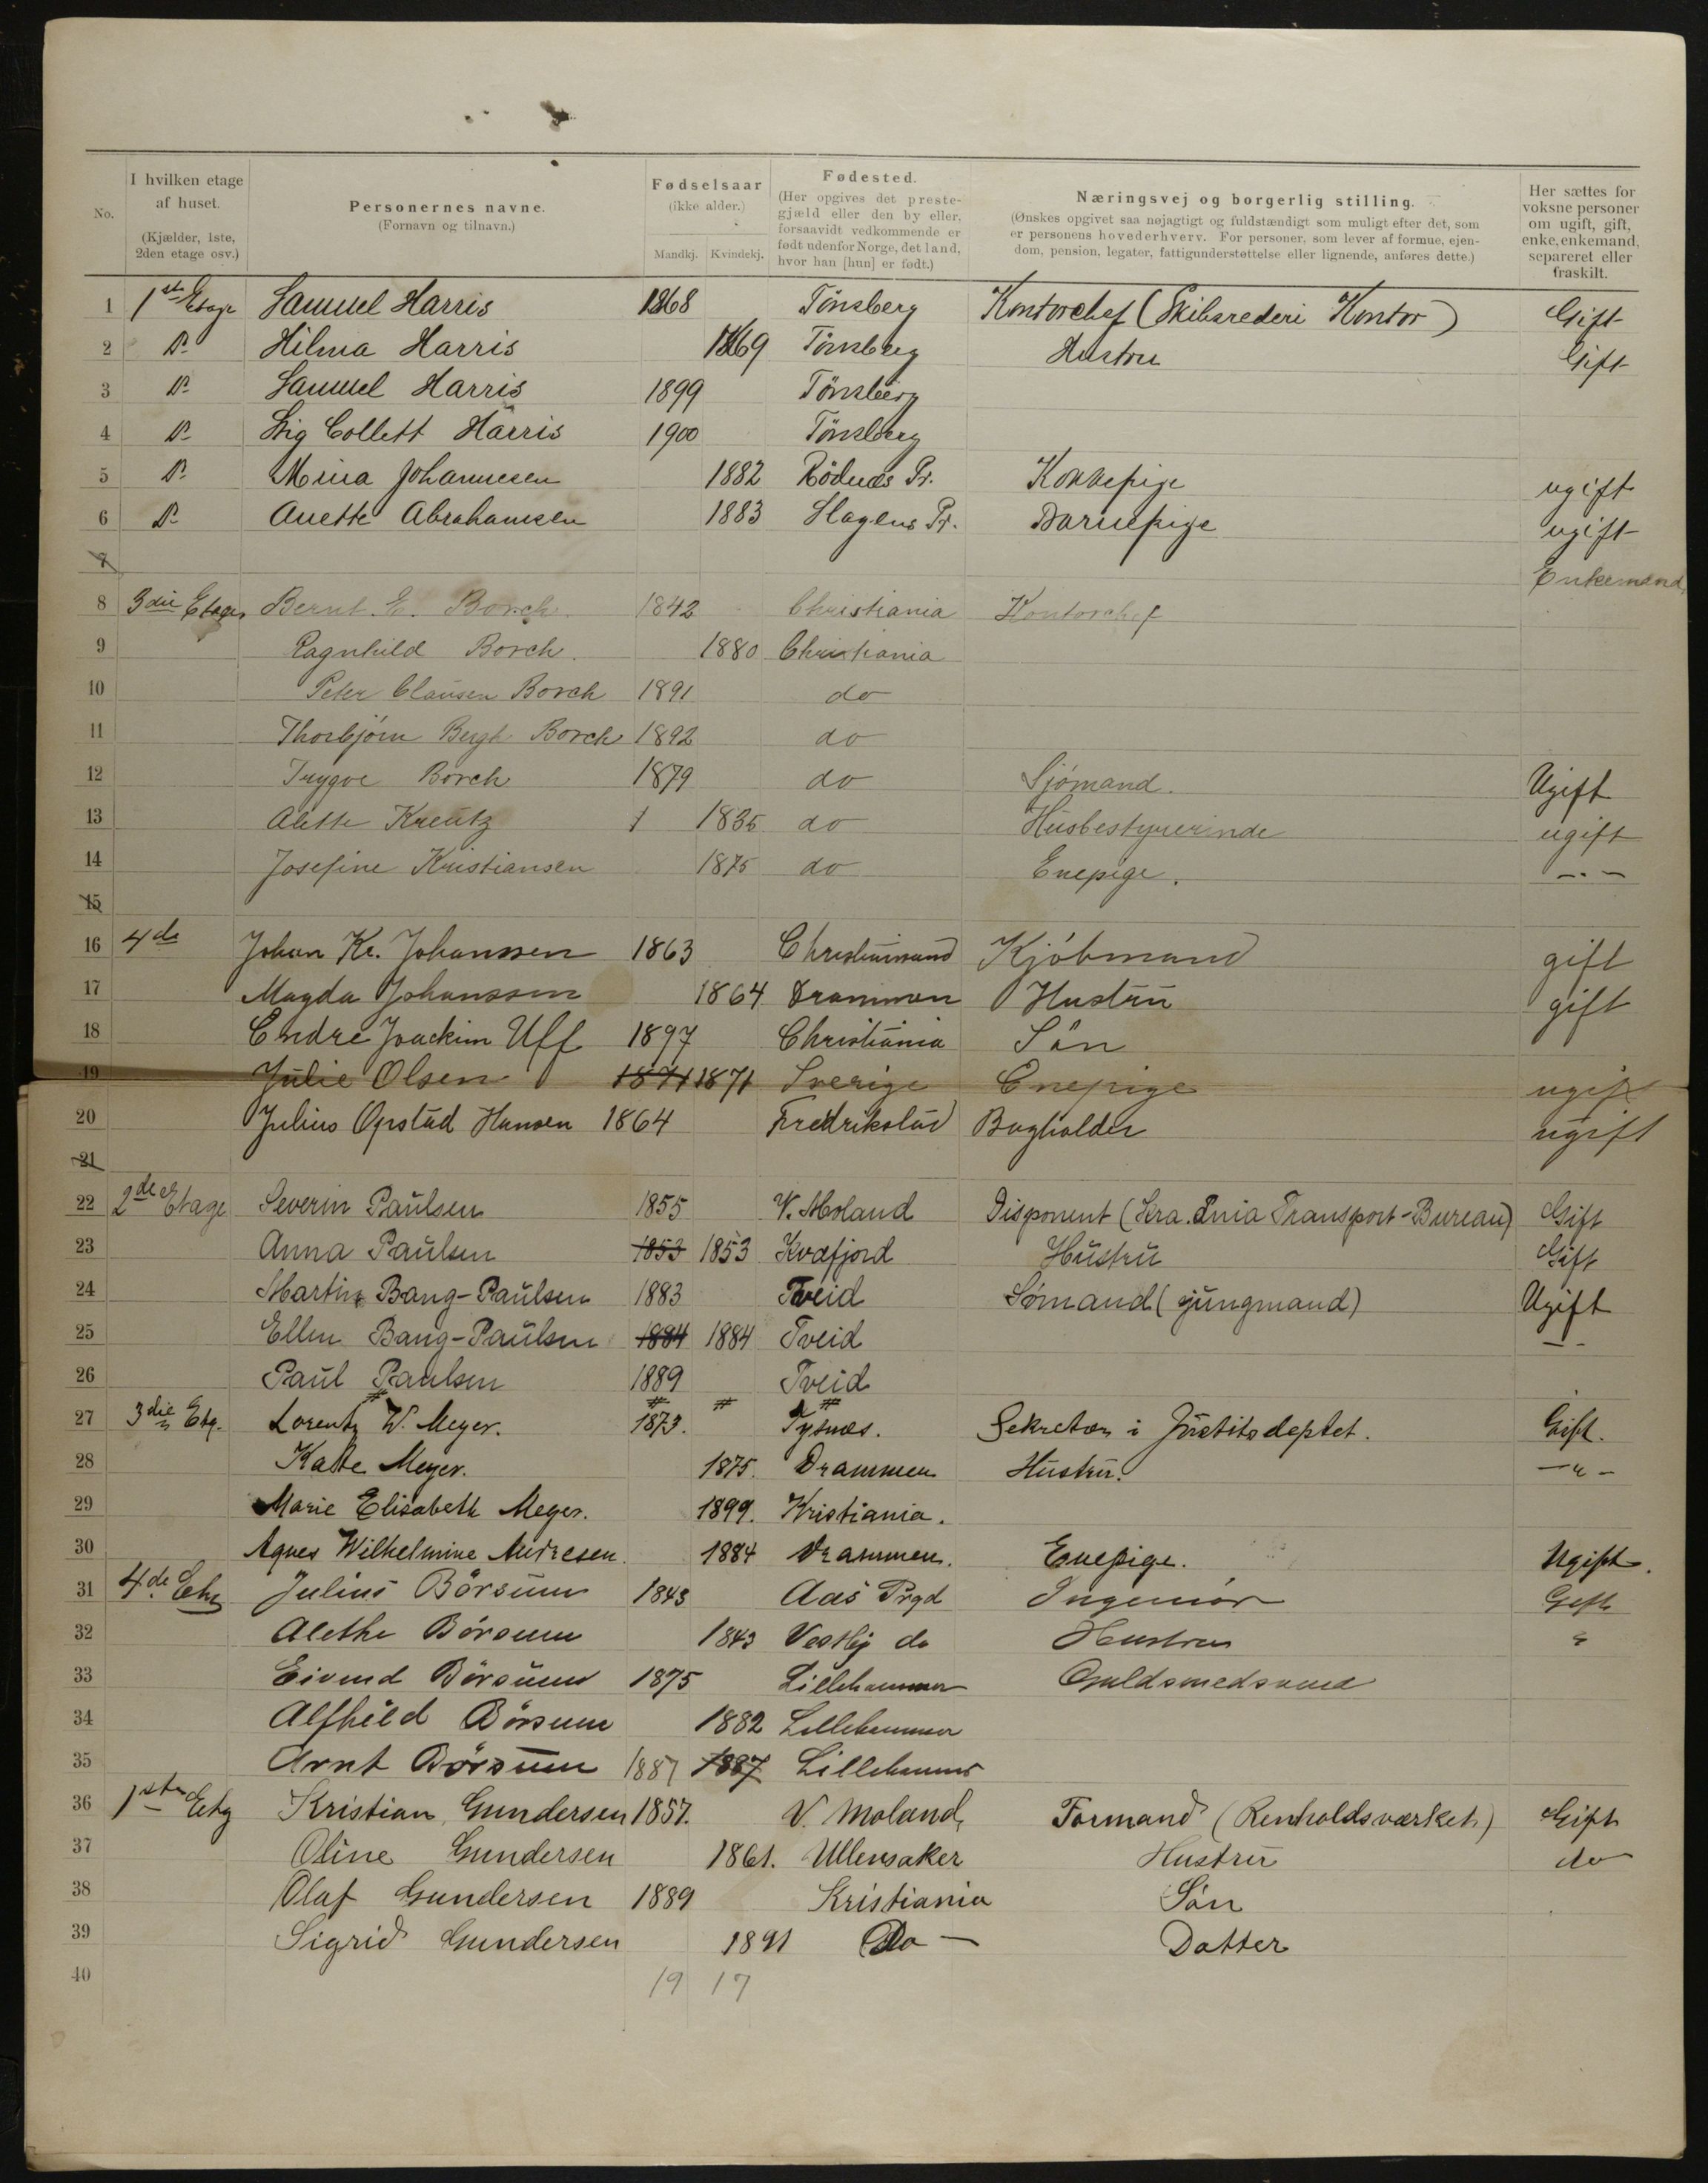 No.
I hvilken etage af huset. (Kjælder, 1ste, 2den etage osv.)
Personernes navne. (Fornavn og tilnavn.)
Fødselsaar (ikke alder.) Mandkj. Kvindekj.
Fødested. (Her opgives det prestegjæld eller den by eller, forsaavidt vedkommende er født udenfor Norge, det land, hvor han [hun] er født.)
Næringsvej og borgerlig stilling. (Ønskes opgivet saa nøjagtigt og fuldstændigt som muligt efter det, som er personens hovederhverv. For personer, som lever af formue, ejendom, pension, legater, fattigunderstøttelse eller lignende, anføres dette.)
Her sættes for voksne personer om ugift, gift, enke, enkemand, separeret eller fraskilt.
1 1ste Etage Samuel Harris 1868 Tönsberg Kontorchef (Skibsrederi Kontor) Gift
2 Do Hilma Harris 1869 Tönsberg Hustru Gift
3 Do Samuel Harris 1899 Tönsberg
4 Do Stig Collett Harris 1900 Tönsberg
5 Do Mina Johannesen 1882 Rödnæs Pr. Kokkepige ugift
6 Do Anette Abrahamsen 1883 Slagens Pr. Barnepige ugift
7 Enkemand
8 3die Etage Bernt E. Borch 1842 Christiania Kontorchef
9 Ragnhild Borch. 1880 Christiania
10 Peter Clausen Borch 1891 do
11 Thorbjörn Bergh Borch 1892 do
12 Trygve Borch 1879 do Sjömand. Ugift
13 Alette Kreutz 1 1835 do Husbestyrerinde ugift
14 Josefine Kristiansen 1875 do Enepige. -"-
15
16 4de Johan Kr. Johanssen 1863 Christiansund Kjöbmand gift
17 Magda Johanssen 1864 Drammen Hustru gift
18 Endre Joackim Uff 1897 Christiania Sön
19 Julie Olsen 1871 1871 Sverige Enepige ugift
20 Julius Opstad Hansen 1864 Fredrikstad Bogholder ugift
21
22 2de Etage Severin Paulsen 1855 V. Moland Disponent (Kra. Transport-Bureau) Gift
23 Anna Paulsen 1853 1853 Kvæfjord Hustru Gift
24 Martin Bang-Paulsen 1883 Tveid Sømand (jungmand) Ugift
25 Ellen Bang-Paulsen 1884 1884 Tveid -"-
26 Paul Paulsen 1889 Tveid
27 3die Etg. Lorentz W. Meyer. 1873. Tysnæs. Sekretær i Justitsdeptet. Gift.
28 Kathe Meyer. 1875. Drammen Hustru. -"-
29 Marie Elisabeth Meyer. 1899. Kristiania.
30 Agnes Wilhelmine Andresen. 1884 Drammen. Enepige. Ugift.
31 4de Etg Julius Börsum 1843 Aas Prgd Ingeniör Gift
32 Alethe Börsum 1843 Vestby do Hustru "
33 Eivind Börsum 1875 Lillehammer Guldsmedsvend
34 Alfhild Börsum 1882 Lillehammer
35 Arnt Börsum 1887 1887 Lillehammer
36 1ste Etg Kristian Gundersen 1857. V. Moland, Formand (Renholdsværket) Gift
37 Oline Gundersen 1861. Ullensaker Hustru do
38 Olaf Gundersen 1889 Kristiania Sön
39 Sigrid Gundersen 1891 Do - Datter
40 19 17